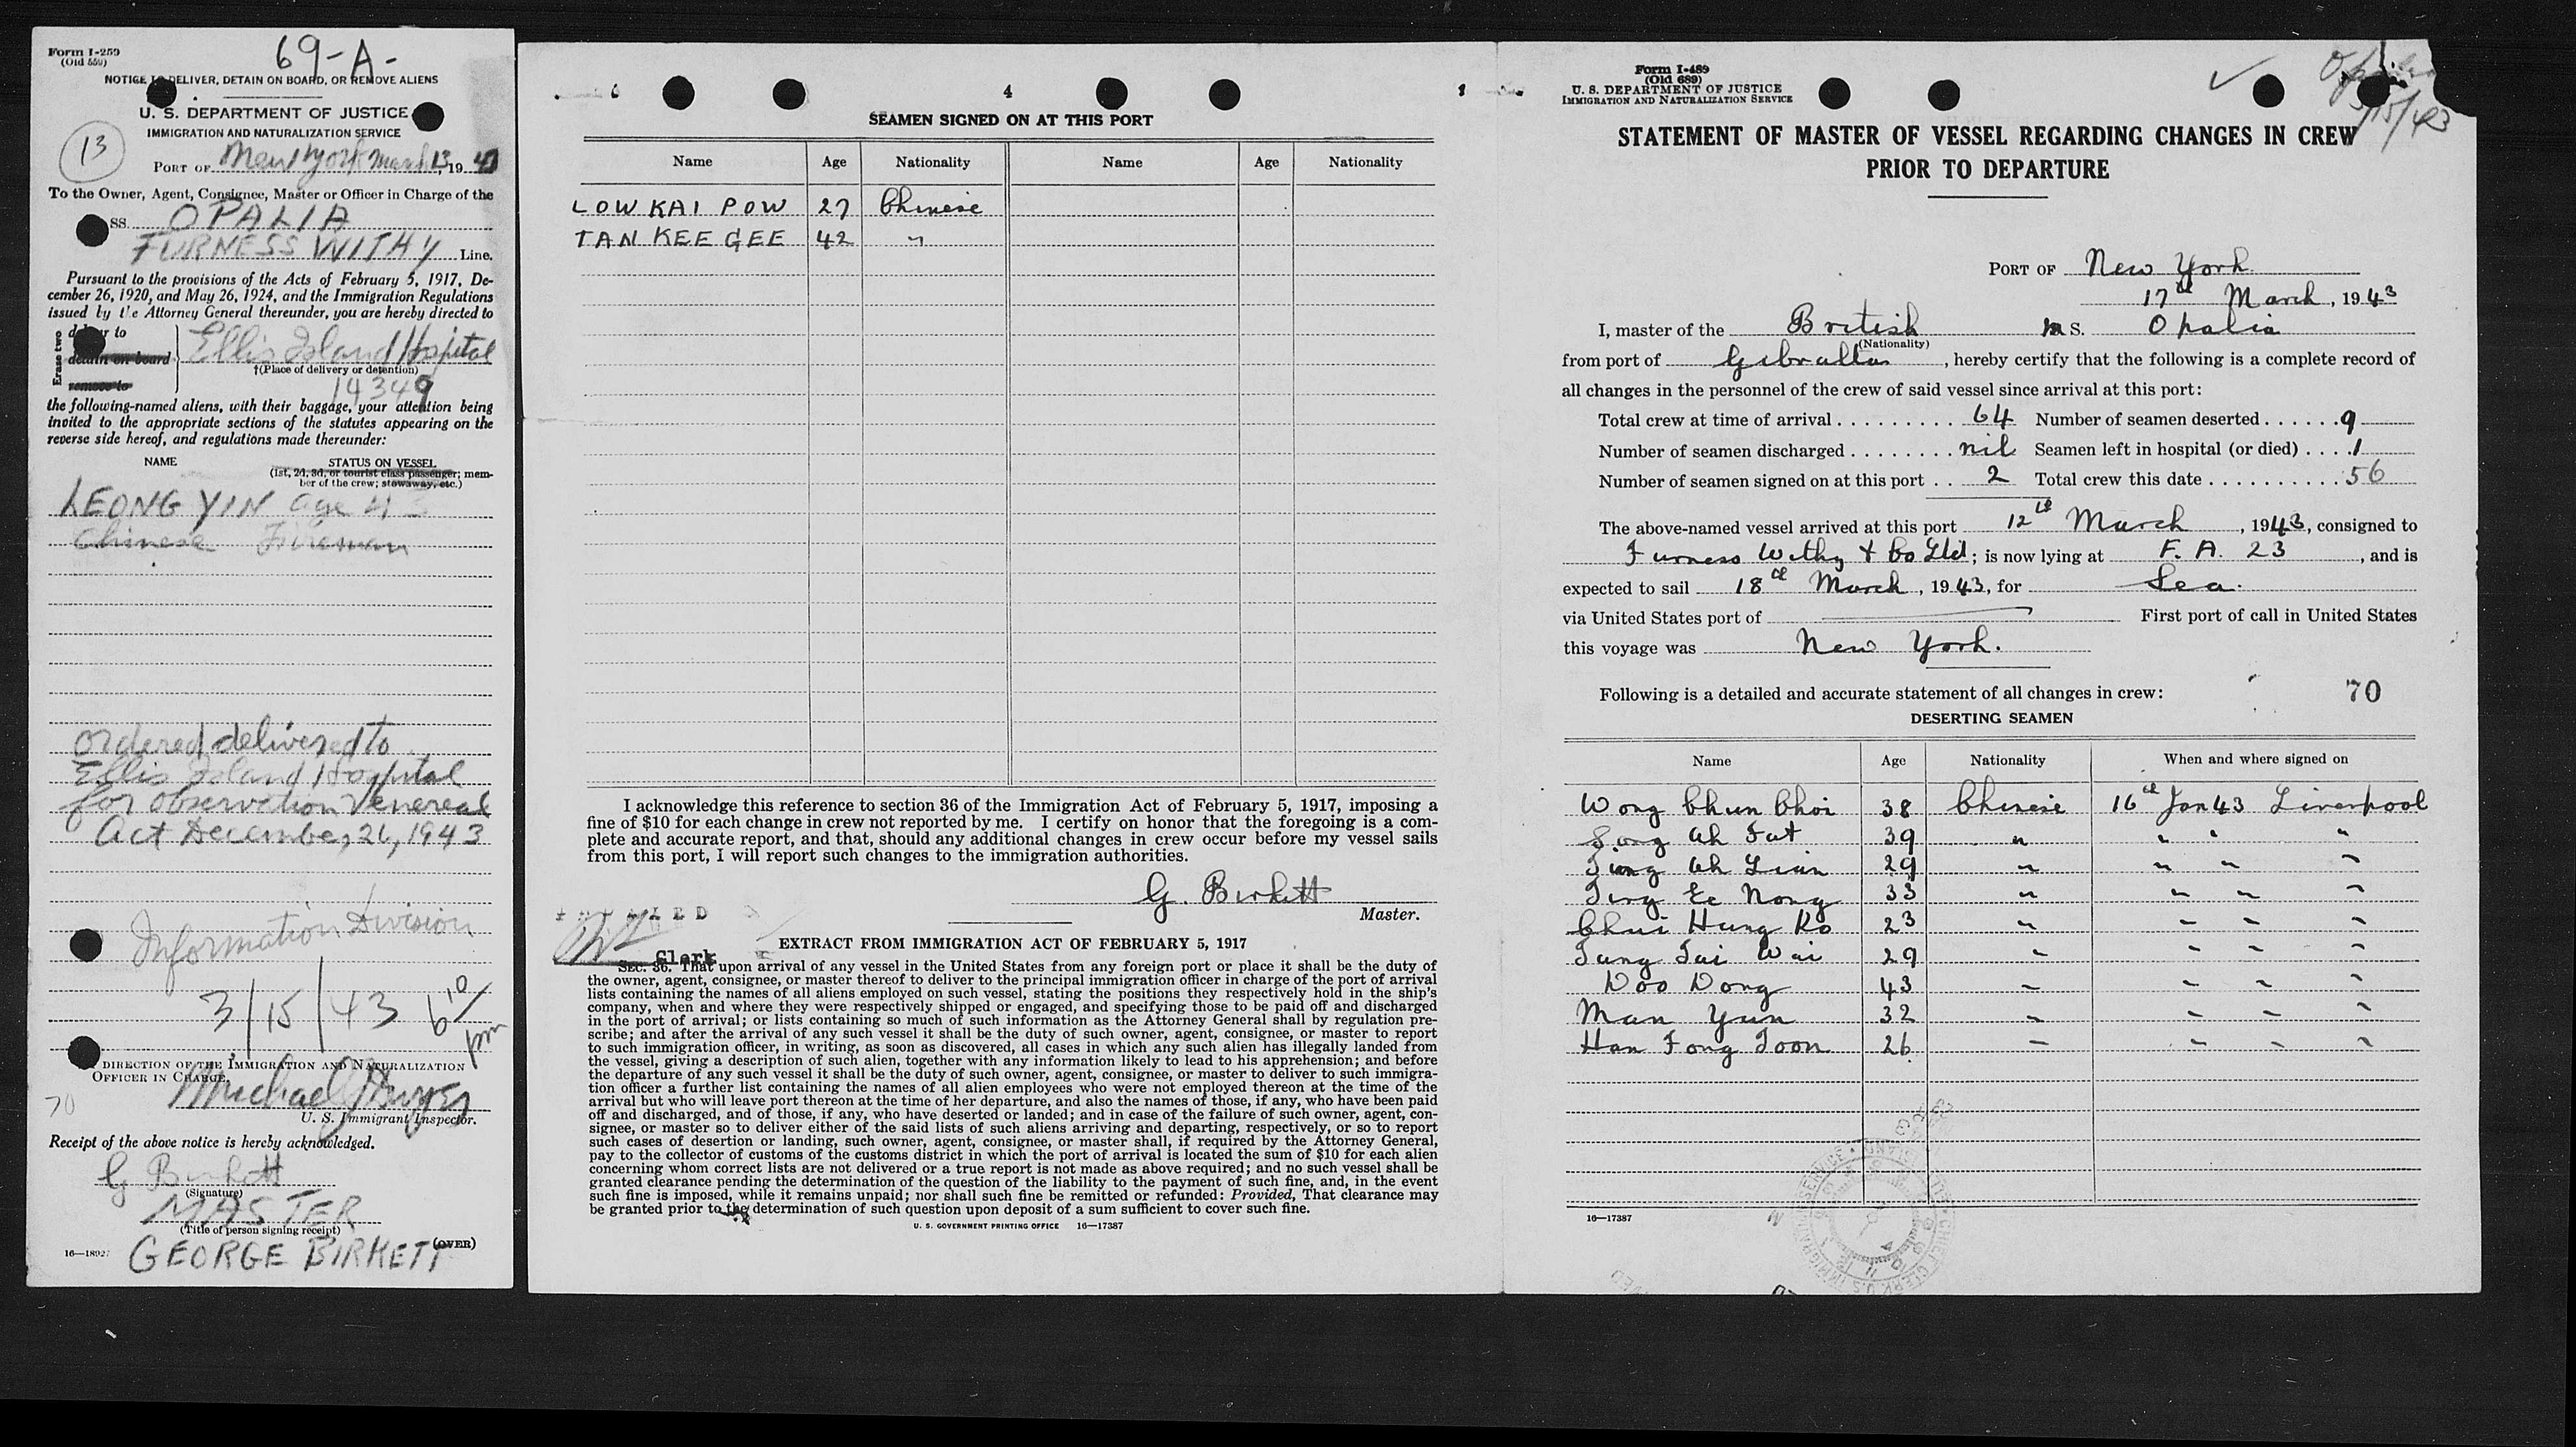 Form I-259
(Old 550)
69-A-
NOTICE TO DELIVER, DETAIN ON BOARD, OR REMOVE ALIENS
U. S. DEPARTMENT OF JUSTICE
IMMIGRATION AND NATURALIZATION SERVICE
13
PORT OF New York March 13, 1943
To the Owner, Agent, Consignee, Master or Officer in Charge of the
SS. OPALIA
FURNESS WITHY Line.
Pursuant to the provisions of the Acts of February 5, 1917, De-
cember 26, 1920, and May 26, 1924, and the Immigration Regulations
issued by the Attorney General thereunder, you are hereby directed to
Erase two
deliver to
detain on board
remove to
Ellis Island Hospital
†(Place of delivery or detention)
14349
the following-named aliens, with their baggage, your attention being
invited to the appropriate sections of the statutes appearing on the
reverse side hereof, and regulations made thereunder:
NAME
STATUS ON VESSEL
(1st, 2d, 3d, or tourist class passenger; mem-
ber of the crew; stowaway, etc.)
LEONG YIN age
Chinese Fireman
Ordered delivered to
Ellis Island Hospital
for observation Venereal
Act December 26, 1943
Information Division
3/15/43 6 10/ pm
DIRECTION OF THE IMMIGRATION AND NATURALIZATION
OFFICER IN CHARGE.
Michael
70
U. S. Immigrant Inspector.
Receipt of the above notice is hereby acknowledged.
G Birkett
(Signature)
MASTER
(Title of person signing receipt)
(OVER)
GEORGE BIRKETT
4
SEAMEN SIGNED ON AT THIS PORT
Name Age Nationality Name Age Nationality
LOW KAI POW 27 Chinese
TAN KEE GEE 42 "
I acknowledge this reference to section 36 of the Immigration Act of February 5, 1917, imposing a
fine of $10 for each change in crew not reported by me. I certify on honor that the foregoing is a com-
plete and accurate report, and that, should any additional changes in crew occur before my vessel sails
from this port, I will report such changes to the immigration authorities.
G. Birkett
Master.
Clerk
EXTRACT FROM IMMIGRATION ACT OF FEBRUARY 5, 1917
SEC. 36. That upon arrival of any vessel in the United States from any foreign port or place it shall be the duty of
the owner, agent, consignee, or master thereof to deliver to the principal immigration officer in charge of the port of arrival
lists containing the names of all aliens employed on such vessel, stating the positions they respectively hold in the ship's
company, when and where they were respectively shipped or engaged, and specifying those to be paid off and discharged
in the port of arrival; or lists containing so much of such information as the Attorney General shall by regulation pre-
scribe; and after the arrival of any such vessel it shall be the duty of such owner, agent, consignee, or master to report
to such immigration officer, in writing, as soon as discovered, all cases in which any such alien has illegally landed from
the vessel, giving a description of such alien, together with any information likely to lead to his apprehension; and before
the departure of any such vessel it shall be the duty of such owner, agent, consignee, or master to deliver to such immigra-
tion officer a further list containing the names of all alien employees who were not employed thereon at the time of the
arrival but who will leave port thereon at the time of her departure, and also the names of those, if any, who have been paid
off and discharged, and of those, if any, who have deserted or landed; and in case of the failure of such owner, agent, con-
signee, or master so to deliver either of the said lists of such aliens arriving and departing, respectively, or so to report
such cases of desertion or landing, such owner, agent, consignee, or master shall, if required by the Attorney General,
pay to the collector of customs of the customs district in which the port of arrival is located the sum of $10 for each alien
concerning whom correct lists are not delivered or a true report is not made as above required; and no such vessel shall be
granted clearance pending the determination of the question of the liability to the payment of such fine, and, in the event
such fine is imposed, while it remains unpaid; nor shall such fine be remitted or refunded: Provided, That clearance may
be granted prior to the determination of such question upon deposit of a sum sufficient to cover such fine.
U. S. GOVERNMENT PRINTING OFFICE 16—17387
Form I-489
(Old 689)
U. S. DEPARTMENT OF JUSTICE
IMMIGRATION AND NATURALIZATION SERVICE
STATEMENT OF MASTER OF VESSEL REGARDING CHANGES IN CREW
PRIOR TO DEPARTURE
PORT OF New York
17th March, 1943
I, master of the British M S. Opalia
(Nationality)
from port of Gibraltar, hereby certify that the following is a complete record of
all changes in the personnel of the crew of said vessel since arrival at this port:
Total crew at time of arrival 64 Number of seamen deserted 9
Number of seamen discharged nil Seamen left in hospital (or died) 1
Number of seamen signed on at this port 2 Total crew this date 56
The above-named vessel arrived at this port 12th March, 1943, consigned to
Furness Withy & Co Ltd; is now lying at F. A. 23, and is
expected to sail 18th March, 1943, for Sea.
via United States port of First port of call in United States
this voyage was New York.
Following is a detailed and accurate statement of all changes in crew: 70
DESERTING SEAMEN
Name Age Nationality When and where signed on
Wong Chun Choi 38 Chinese 16th Jan 43 Liverpool
Ah Fat 39 " " " "
Ah Lian 29 " " " "
Nong 33 " " " "
Chui Hung Ko 23 " " " "
Tung Tai Wai 29 " " " "
Doo Dong 43 " " " "
Man Yun 32 " " " "
Han Fong Toon 26 " " " "
16—17387